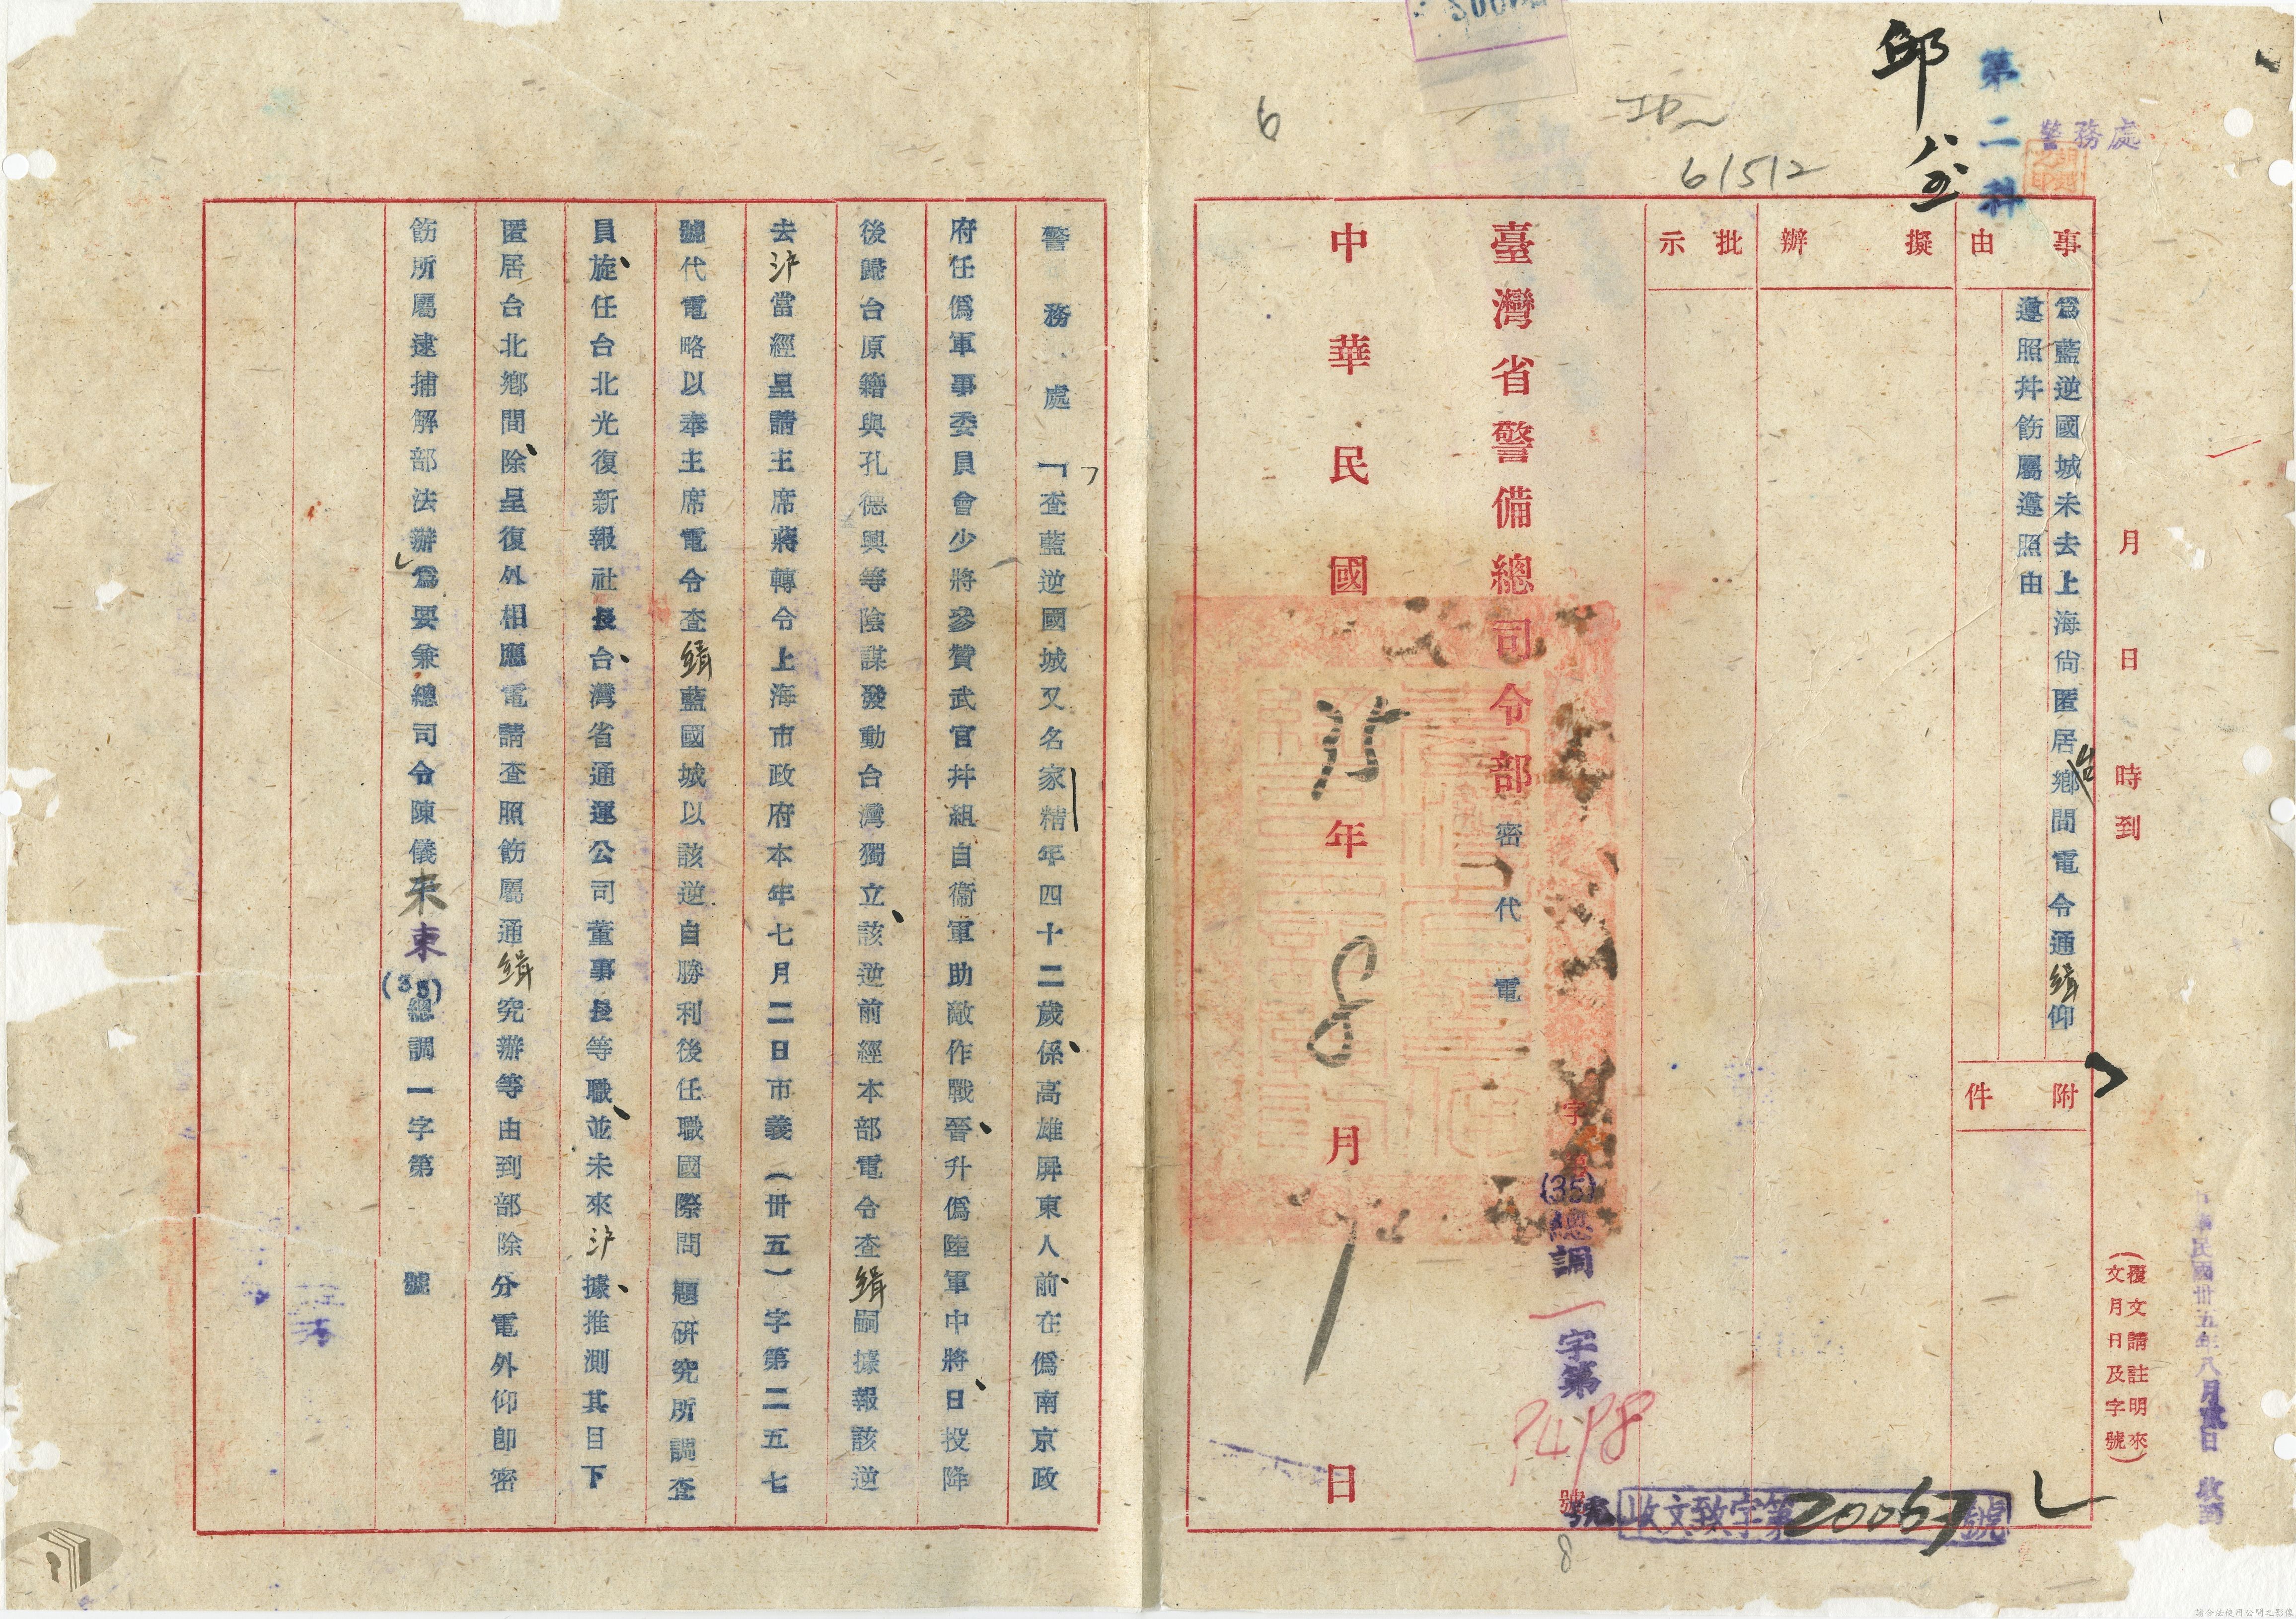 警務處
第二科
邱
6
61512
月 日 時到
事由
為藍逆國城未去上海尚匿居台鄉間電令通緝仰
遵照并飭屬遵照由
附件
擬辦
批示
(覆文請註明來
文月日及字號)
中華民國卅五年八月 日 收到
臺灣省警備總司令部密代電
字第 號
(35)總調一字第7498號
收文致字第20063號
中華民國35年8月1日
8
警務處「查藍逆國城又名家精年四十二歲係高雄屏東人前在偽南京政
府任偽軍事委員會少將參贊武官并組自衛軍助敵作戰晉升偽陸軍中將日投降
後歸台原籍與孔德興等陰謀發動台灣獨立該逆前經本部電令查緝嗣據報該逆
去沪當經呈請主席蔣轉令上海市政府本年七月二日市義(卅五)字第二五七
號代電略以奉主席電令查緝藍國城以該逆自勝利後任職國際問題研究所調查
員旋任台北光復新報社長台灣省通運公司董事長等職並未來沪據推測其目下
匿居台北鄉間除呈復外相應電請查照飭屬通緝究辦等由到部除分電外仰即密
飭所屬逮捕解部法辦為要兼總司令陳儀未東(35)總調一字第 號